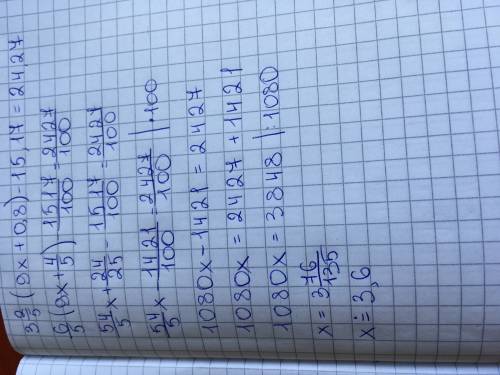 3 2/5 (9x + 0,8) - 15,17 = 24,27
6/5 (9x + 4/5) - 1517/100 = 2427/100
54/5 x + 24/25 - 1517/100 = 2427/100
54/5 x - 1421/100 = 2427/100 | ·100
1080x - 1421 = 2427
1080x = 2427 + 1421
1080x = 3848 | :1080
x = 3 76/135
x ≐ 3,6